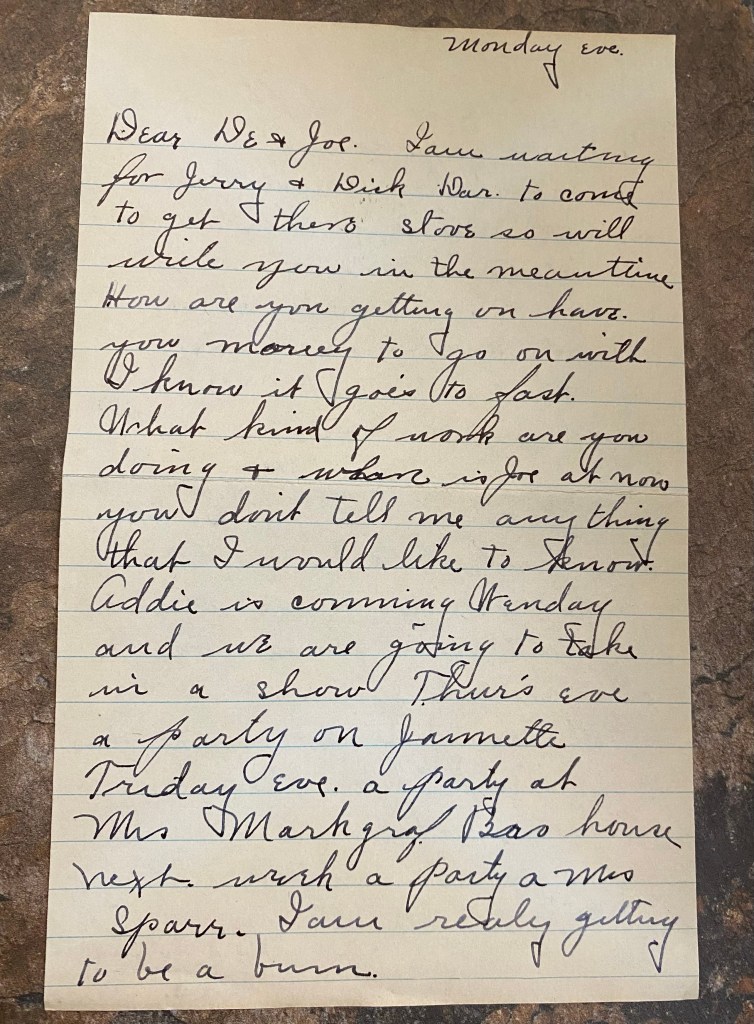 Monday eve.
Dear De & Joe. I am waiting
for Jerry & Dick Dar. to come
to get there stove so will
write you in the meantime
How are you getting on have.
you money to go on with
I know it goes to fast.
What kind of work are you
doing & whare is Joe at now
you don't tell me any thing
that I would like to know.
Addie is comming Wenday
and we are going to take
in a show Thur's eve
a party on Jannette
Friday eve. a party at
Mrs Markgraf Bas house
next. week a party a Mrs
Sparr. I am realy getting
to be a bum.